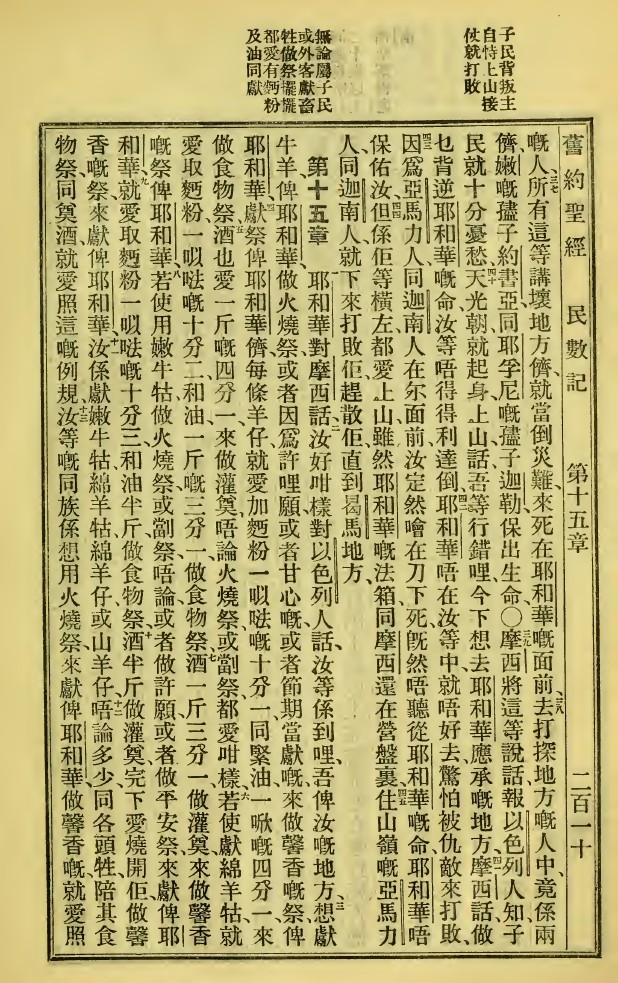 子民背叛主
自恃上山接
仗就打敗
無論屬子民
或外客獻畜
牲做祭擺擺
都愛有麪粉
及油同獻
舊約聖經 民數記 第十五章 二百一十
嘅人所有這等講壞地方儕就當倒災難來死在耶和華嘅面前三八去打探地方嘅人中竟係兩
儕嫩嘅孻子約書亞同耶孚尼嘅孻子迦勒保出生命〇三九摩西將這等說話報以色列人知子
民就十分憂愁四十天光朝就起身上山話吾等行錯哩今下想去耶和華應承嘅地方四一摩西話做
乜背逆耶和華嘅命汝等唔得得利達倒四二耶和華唔在汝等中就唔好去驚怕被仇敵來打敗
四三因爲亞馬力人同迦南人在尔面前汝定然噲在刀下死旣然唔聽從耶和華嘅命耶和華唔
保佑汝四四但係佢等橫左都愛上山雖然耶和華嘅法箱同摩西還在營盤裏四五住山嶺嘅亞馬力
人同迦南人就下來打敗佢趕散佢直到曷馬地方
第十五章 耶和華對摩西話二汝好咁樣對以色列人話汝等係到哩吾俾汝嘅地方三想獻
牛羊俾耶和華做火燒祭或者因爲許哩願或者甘心嘅或者節期當獻嘅來做馨香嘅祭俾
耶和華四獻祭俾耶和華儕每條羊仔就愛加麪粉一㕽𠵽嘅十分一同緊油一㗀嘅四分一來
做食物祭五酒也愛一斤嘅四分一來做灌奠唔論火燒祭或劏祭都愛咁樣六若使獻綿羊牯就
愛取麪粉一㕽𠵽嘅十分二和油一斤嘅三分一做食物祭七酒一斤三分一做灌奠來做馨香
嘅祭俾耶和華八若使用嫩牛牯做火燒祭或劏祭唔論或者做許願或者做平安祭來獻俾耶
和華九就愛取麪粉一㕽𠵽嘅十分三和油半斤做食物祭十酒半斤做灌奠完下愛燒開佢做馨
香嘅祭來獻俾耶和華十一汝係獻嫩牛牯綿羊牯綿羊仔或山羊仔十二唔論多少同各頭牲陪其食
物祭同奠酒就愛照這嘅例規十三汝等嘅同族係想用火燒祭來獻俾耶和華做馨香嘅就愛照